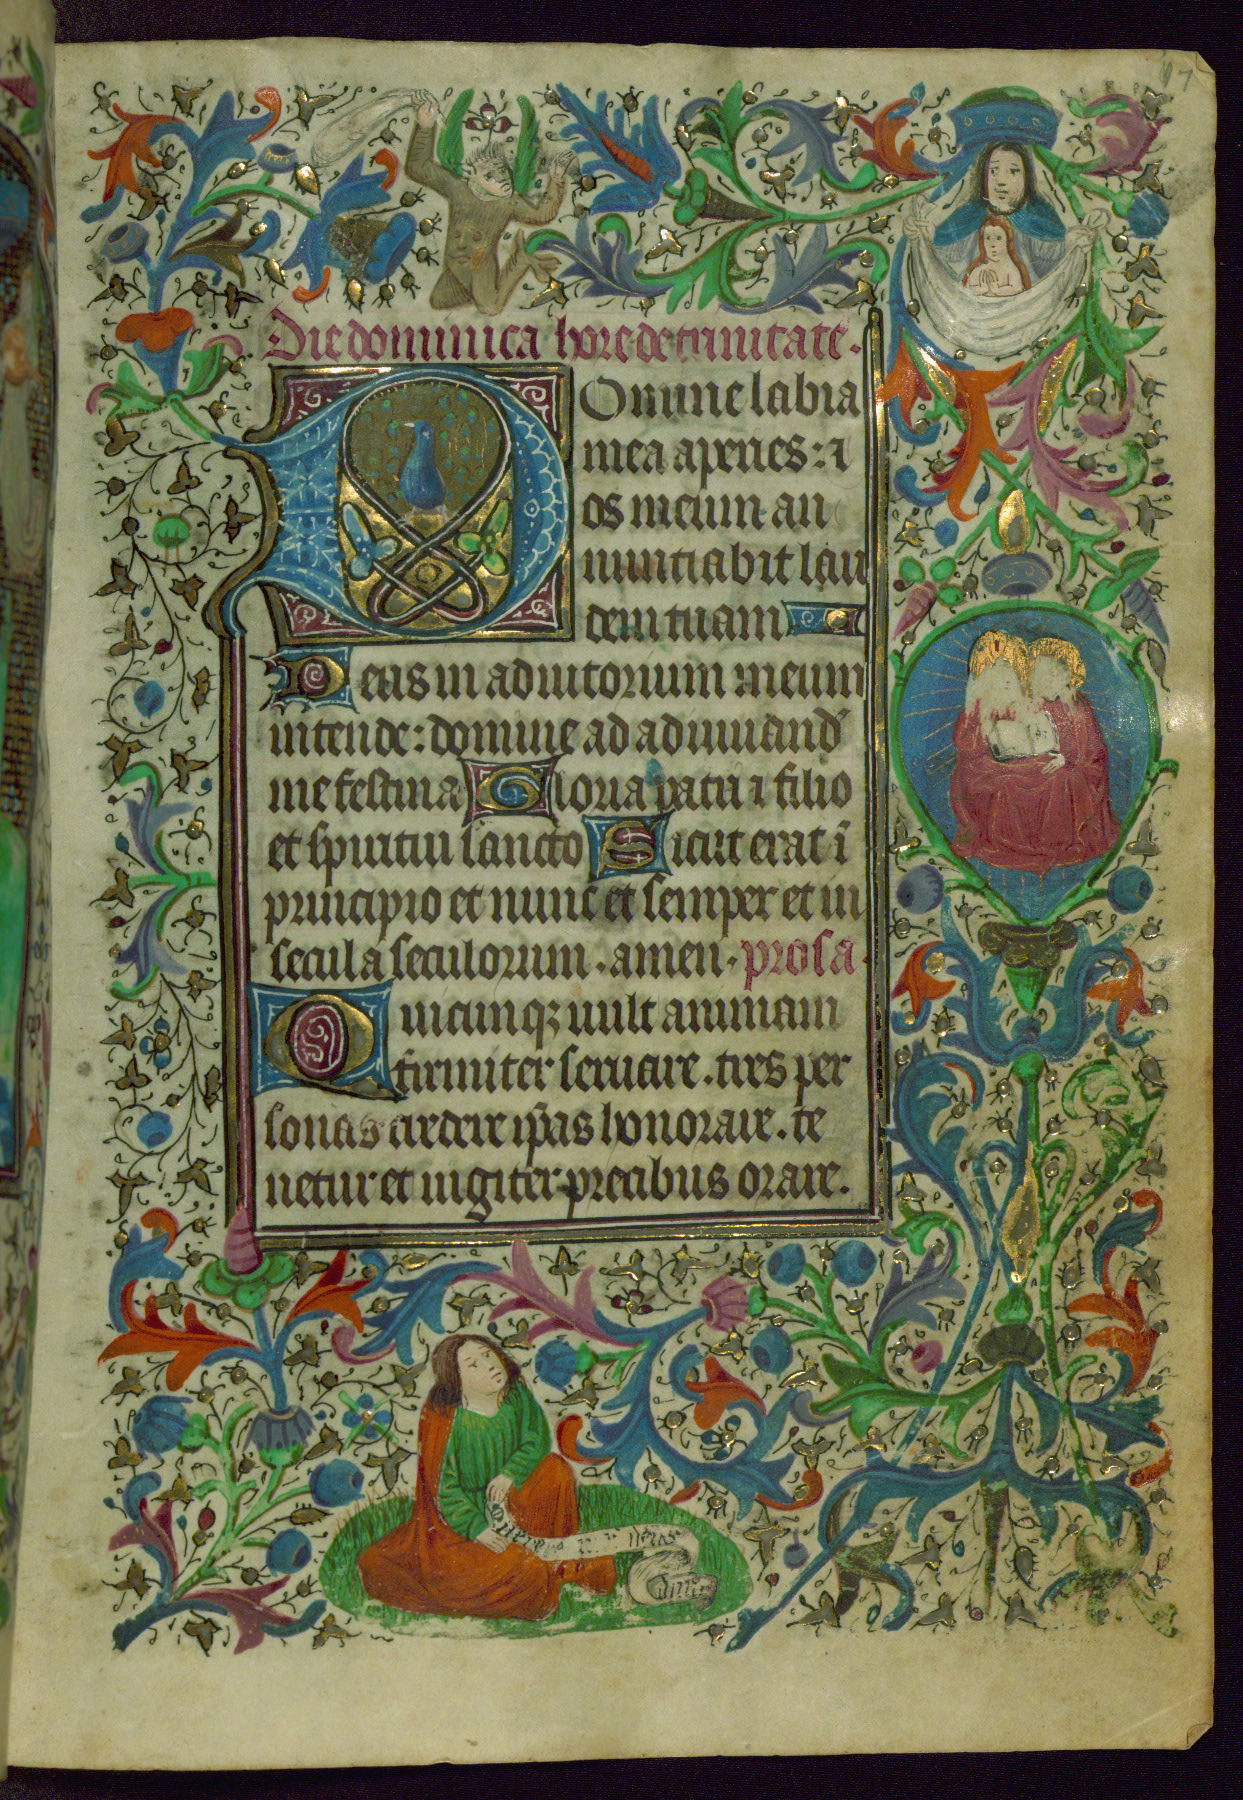 17
Die dominica hore de trinitate.
Domine labia
mea aperies: ⁊
os meum an
nuntiabit lau
dem tuam
Deus in adiutorium meum
intende: domine ad adiuuand̄
me festina Gloria patri ⁊ filio
et spiritui sancto Sicut erat ī
principio et nunc et semper et in
secula seculorum. amen. prosa.
Quicunqꝫ uult animam
firmiter seruare. tres per
sonas credere ip̄as honorare. te
netur et iugiter precibus orare.